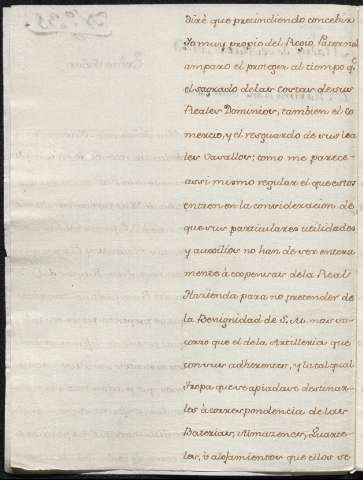 diré que precindiendo concebir
Yo muy propio del Regio Paternal
amparo el proteger al tiempo q.e
el sagrado de las costas de sus
Reales Dominios, tambien el co
mercio, y el resguardo de sus lea
les Vasallos; como me parece
assi mismo regular el que estos
entren en la consideracion de
que sus particulares utilidades
y auxilios no han de ser entera
mente à expensas de la Real
Hazienda para no pretender de
la Benignidad de S. M. mas so
corro que el de la Artilleria que
con sus adherentes, y la tal qual
tropa que se apiadase destinar
les à correspondencia de las
Baterias, Almazenes, Quarte
les, ò alojamientos que ellos se